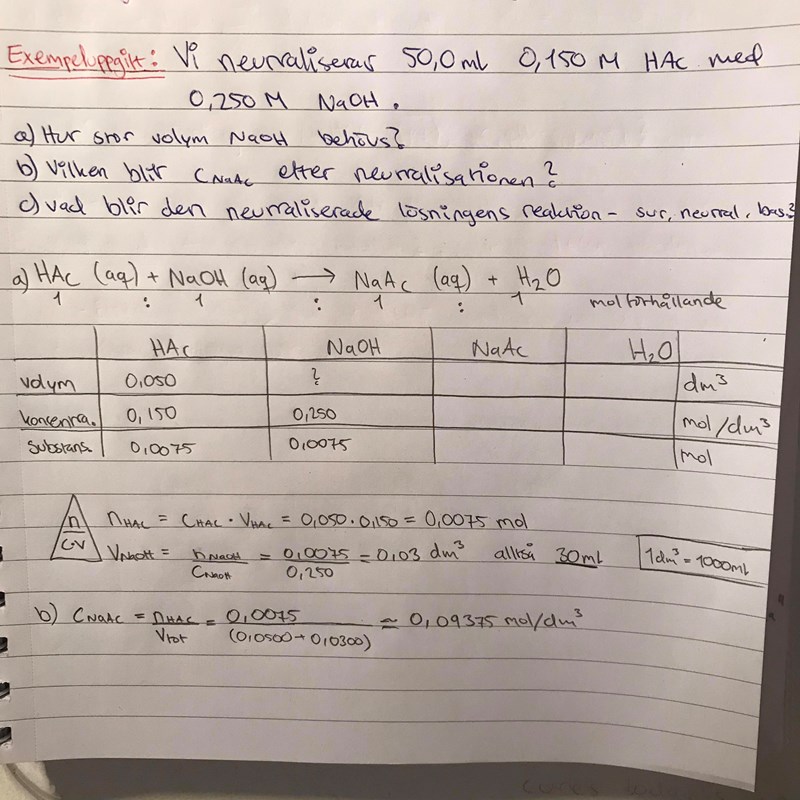 Exempeluppgift: Vi neutraliserar 50,0 ml 0,150 M HAc med
0,250 M NaOH.
a) Hur stor volym NaOH behövs?
b) Vilken blir C_NaAc efter neutralisationen?
c) Vad blir den neutraliserade lösningens reaktion - sur, neutral, bas?
a) HAc (aq) + NaOH (aq) → NaAc (aq) + H₂O
1 : 1 : 1 : 1 molförhållande
HAc NaOH NaAc H₂O
volym 0,050 ? dm³
koncentra. 0,150 0,250 mol/dm³
Substans. 0,0075 0,0075 mol
n n_HAc = C_HAc · V_HAc = 0,050 · 0,150 = 0,0075 mol
C·V V_NaOH = n_NaOH / C_NaOH = 0,0075 / 0,250 = 0,03 dm³ alltså 30 ml 1 dm³ = 1000 ml
b) C_NaAc = n_HAc / V_tot = 0,0075 / (0,0500 + 0,0300) ≈ 0,09375 mol/dm³